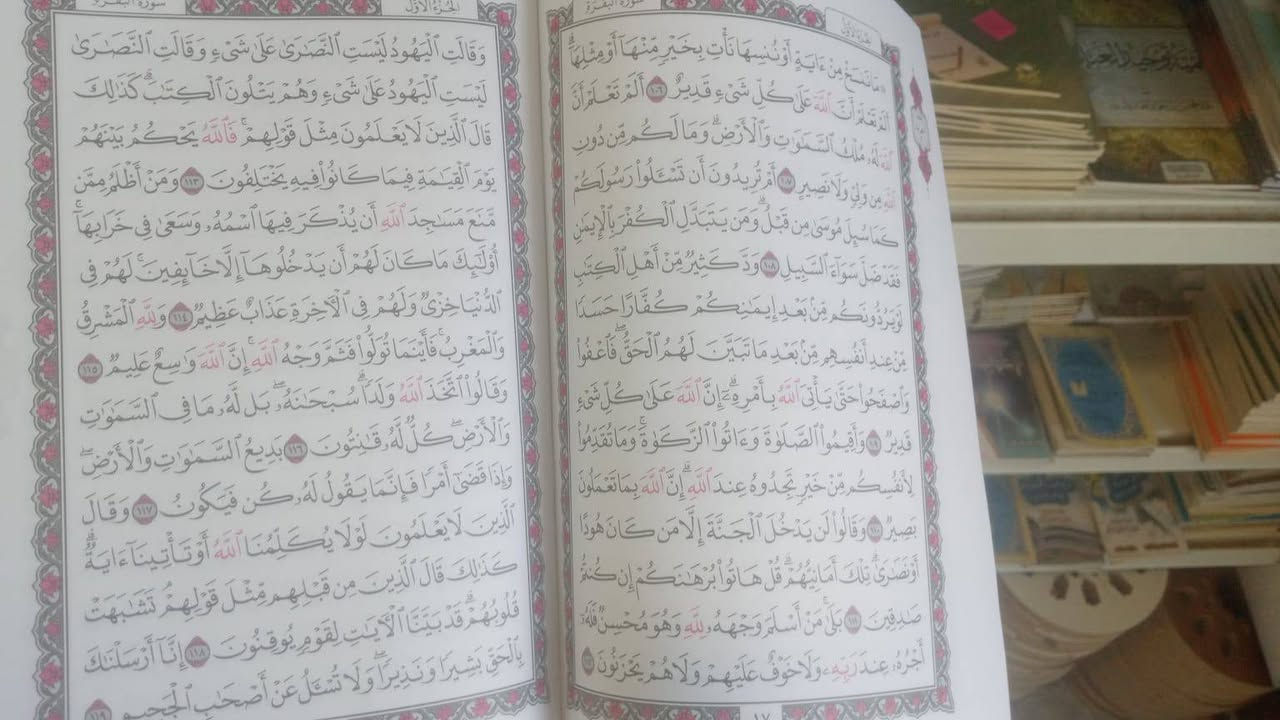 سورة البقرة
۞ مَا نَنسَخْ مِنْ ءَايَةٍ أَوْ نُنسِهَا نَأْتِ بِخَيْرٍ مِّنْهَآ أَوْ مِثْلِهَآ ۗ
أَلَمْ تَعْلَمْ أَنَّ ٱللَّهَ عَلَىٰ كُلِّ شَىْءٍ قَدِيرٌ ١٠٦ أَلَمْ تَعْلَمْ أَنَّ
ٱللَّهَ لَهُۥ مُلْكُ ٱلسَّمَٰوَٰتِ وَٱلْأَرْضِ ۗ وَمَا لَكُم مِّن دُونِ
ٱللَّهِ مِن وَلِىٍّ وَلَا نَصِيرٍ ١٠٧ أَمْ تُرِيدُونَ أَن تَسْـَٔلُوا۟ رَسُولَكُمْ
كَمَا سُئِلَ مُوسَىٰ مِن قَبْلُ ۗ وَمَن يَتَبَدَّلِ ٱلْكُفْرَ بِٱلْإِيمَٰنِ
فَقَدْ ضَلَّ سَوَآءَ ٱلسَّبِيلِ ١٠٨ وَدَّ كَثِيرٌ مِّنْ أَهْلِ ٱلْكِتَٰبِ
لَوْ يَرُدُّونَكُم مِّنۢ بَعْدِ إِيمَٰنِكُمْ كُفَّارًا حَسَدًا
مِّنْ عِندِ أَنفُسِهِم مِّنۢ بَعْدِ مَا تَبَيَّنَ لَهُمُ ٱلْحَقُّ ۖ فَٱعْفُوا۟
وَٱصْفَحُوا۟ حَتَّىٰ يَأْتِىَ ٱللَّهُ بِأَمْرِهِۦٓ ۗ إِنَّ ٱللَّهَ عَلَىٰ كُلِّ شَىْءٍ
قَدِيرٌ ١٠٩ وَأَقِيمُوا۟ ٱلصَّلَوٰةَ وَءَاتُوا۟ ٱلزَّكَوٰةَ ۚ وَمَا تُقَدِّمُوا۟
لِأَنفُسِكُم مِّنْ خَيْرٍ تَجِدُوهُ عِندَ ٱللَّهِ ۗ إِنَّ ٱللَّهَ بِمَا تَعْمَلُونَ
بَصِيرٌ ١١٠ وَقَالُوا۟ لَن يَدْخُلَ ٱلْجَنَّةَ إِلَّا مَن كَانَ هُودًا
أَوْ نَصَٰرَىٰ ۗ تِلْكَ أَمَانِيُّهُمْ ۗ قُلْ هَاتُوا۟ بُرْهَٰنَكُمْ إِن كُنتُمْ
صَٰدِقِينَ ١١١ بَلَىٰ مَنْ أَسْلَمَ وَجْهَهُۥ لِلَّهِ وَهُوَ مُحْسِنٌ فَلَهُۥٓ
أَجْرُهُۥ عِندَ رَبِّهِۦ وَلَا خَوْفٌ عَلَيْهِمْ وَلَا هُمْ يَحْزَنُونَ ١١٢
١٧
الجزء الأول
سورة البقرة
وَقَالَتِ ٱلْيَهُودُ لَيْسَتِ ٱلنَّصَٰرَىٰ عَلَىٰ شَىْءٍ وَقَالَتِ ٱلنَّصَٰرَىٰ
لَيْسَتِ ٱلْيَهُودُ عَلَىٰ شَىْءٍ وَهُمْ يَتْلُونَ ٱلْكِتَٰبَ ۗ كَذَٰلِكَ
قَالَ ٱلَّذِينَ لَا يَعْلَمُونَ مِثْلَ قَوْلِهِمْ ۚ فَٱللَّهُ يَحْكُمُ بَيْنَهُمْ
يَوْمَ ٱلْقِيَٰمَةِ فِيمَا كَانُوا۟ فِيهِ يَخْتَلِفُونَ ١١٣ وَمَنْ أَظْلَمُ مِمَّن
مَّنَعَ مَسَٰجِدَ ٱللَّهِ أَن يُذْكَرَ فِيهَا ٱسْمُهُۥ وَسَعَىٰ فِى خَرَابِهَآ ۚ
أُو۟لَٰٓئِكَ مَا كَانَ لَهُمْ أَن يَدْخُلُوهَآ إِلَّا خَآئِفِينَ ۚ لَهُمْ فِى
ٱلدُّنْيَا خِزْىٌ وَلَهُمْ فِى ٱلْأَخِرَةِ عَذَابٌ عَظِيمٌ ١١٤ وَلِلَّهِ ٱلْمَشْرِقُ
وَٱلْمَغْرِبُ ۚ فَأَيْنَمَا تُوَلُّوا۟ فَثَمَّ وَجْهُ ٱللَّهِ ۚ إِنَّ ٱللَّهَ وَٰسِعٌ عَلِيمٌ ١١٥
وَقَالُوا۟ ٱتَّخَذَ ٱللَّهُ وَلَدًا ۗ سُبْحَٰنَهُۥ ۖ بَل لَّهُۥ مَا فِى ٱلسَّمَٰوَٰتِ
وَٱلْأَرْضِ ۖ كُلٌّ لَّهُۥ قَٰنِتُونَ ١١٦ بَدِيعُ ٱلسَّمَٰوَٰتِ وَٱلْأَرْضِ ۖ
وَإِذَا قَضَىٰٓ أَمْرًا فَإِنَّمَا يَقُولُ لَهُۥ كُن فَيَكُونُ ١١٧ وَقَالَ
ٱلَّذِينَ لَا يَعْلَمُونَ لَوْلَا يُكَلِّمُنَا ٱللَّهُ أَوْ تَأْتِينَآ ءَايَةٌ ۗ
كَذَٰلِكَ قَالَ ٱلَّذِينَ مِن قَبْلِهِم مِّثْلَ قَوْلِهِمْ ۘ تَشَٰبَهَتْ
قُلُوبُهُمْ ۗ قَدْ بَيَّنَّا ٱلْأَيَٰتِ لِقَوْمٍ يُوقِنُونَ ١١٨ إِنَّآ أَرْسَلْنَٰكَ
بِٱلْحَقِّ بَشِيرًا وَنَذِيرًا ۖ وَلَا تُسْـَٔلُ عَنْ أَصْحَٰبِ ٱلْجَحِيمِ ١١٩